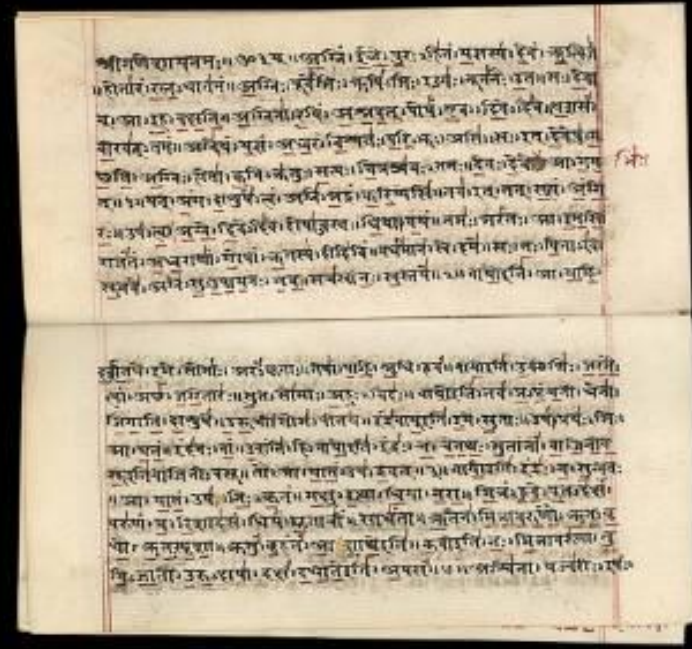 श्रीगणेशायनमः॥ अग्निं। ईळे। पुरःऽहितं। यज्ञस्य। देवं। ऋत्विजं
॥होतारं। रत्नऽधातमं॥ अग्निः। पूर्वेभिः। ऋषिऽभिः। ईड्यः। नूतनैः। उत॥ सः। देवा
न्। आ। इह। वक्षति॥ अग्निना। रयिं। अश्नवत्। पोषं। एव। दिवेऽदिवे॥ यशसं
वीरवत्ऽतमं॥ अग्ने। यं। यज्ञं। अध्वरं। विश्वतः। परिऽभूः। असि॥ सः। इत्। देवेषु। ग
च्छति॥ अग्निः। होता। कविऽक्रतुः। सत्यः। चित्रश्रवःऽतमः॥ देवः। देवेभिः। आ। गम
त्॥१॥ यत्। अंग। दाशुषे। त्वं। अग्ने। भद्रं। करिष्यसि॥ तव। इत्। तत्। सत्यं। अंगि
रः॥ उप। त्वा। अग्ने। दिवेऽदिवे। दोषाऽवस्तः। धिया। वयं॥ नमः। भरंतः। आ। इमसि
राजंतं। अध्वराणां। गोपां। ऋतस्य। दीदिविं॥ वर्धमानं। स्वे। दमे॥ सः। नः। पिताऽइव
सूनवे। अग्ने। सुऽउपायनः। भव॥ सचस्व। नः। स्वस्तये॥२॥ वायोइति। आ। याहि
दर्शत। इमे। सोमाः। अरंऽकृताः॥ तेषां। पाहि। श्रुधि। हवं॥ वायोइति। उक्थेभिः। जरंते
त्वां। अच्छ। जरितारः॥ सुतऽसोमाः। अहःऽविदः॥ वायोइति। तव। प्रऽपृंचती। धेना
जिगाति। दाशुषे॥ उरूची। सोमऽपीतये॥ इंद्रवायूइति। इमे। सुताः। उप। प्रयःऽभिः
आ। गतं॥ इंदवः। वां। उशंति। हि॥ वायोइति। इंद्रः। च। चेतथः। सुतानां। वाजिनीव
सूइतिवाजिनीऽवसू॥ तौ। आ। यातं। उप। द्रवत्॥३॥ वायोइति। इंद्रः। च। सुन्वतः
॥आ। यातं। उप। निःऽकृतं॥ मक्षु। इत्था। धिया। नरा॥ मित्रं। हुवे। पूतऽदक्षं
वरुणं। च। रिशादसं॥ धियं। घृताचीं। साधंता॥ ऋतेन। मित्रावरुणौ। ऋतऽवृ
धौ। ऋतऽस्पृशा॥ क्रतुं। बृहंतं। आशाथेइति॥ कवीइति। नः। मित्रावरुणा। तु
विऽजातौ। उरुऽक्षया॥ दक्षं। दधातेइति। अपसं॥४॥ अश्विना। यज्वरीः। इषः